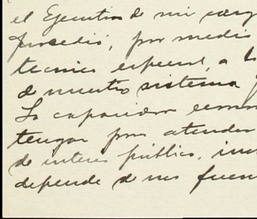 el Ejecutivo de mi cargo
procedió, por medio
técnica especial, a
de nuestro sistema
La capacidad
tengan para atender
de interés público,
depende de sus fuen